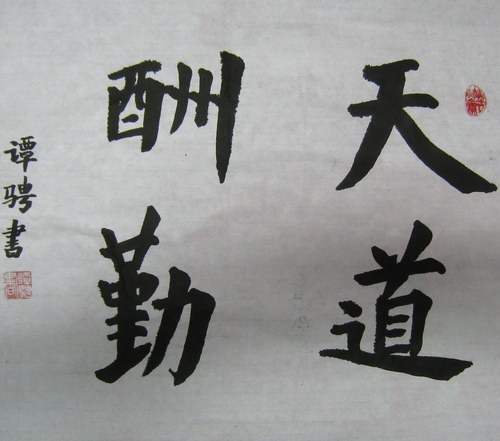 天道
酬勤
谭骋书